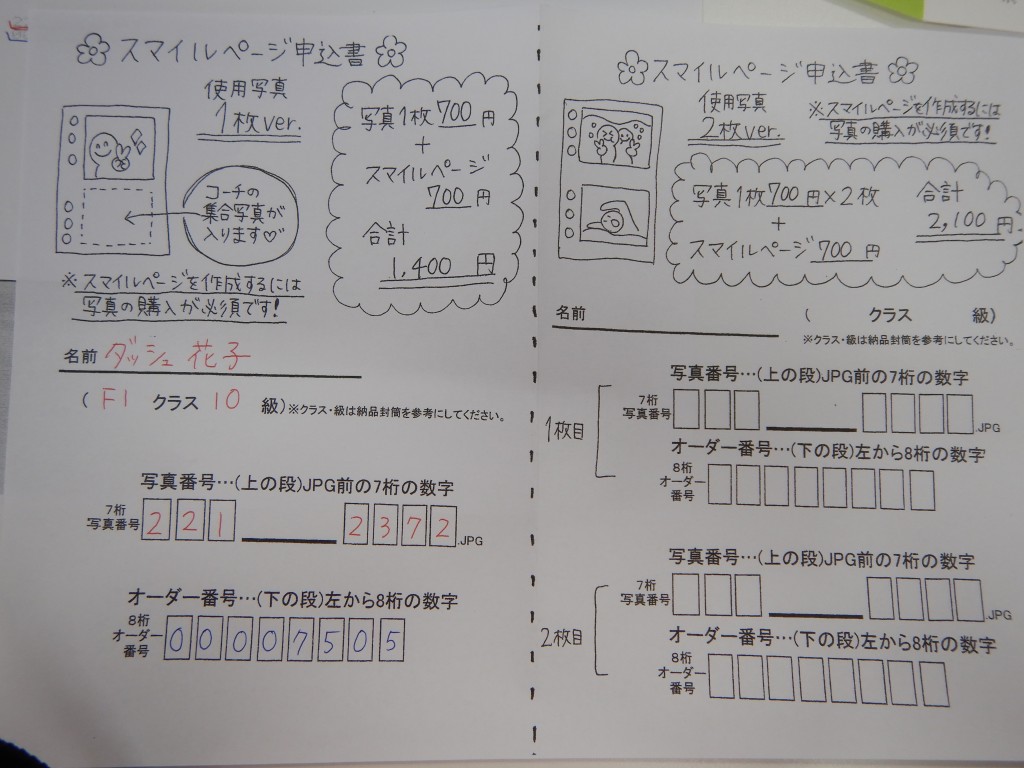 スマイルページ申込書
使用写真
1枚ver.
写真1枚700円
+
スマイルページ
700円
合計
1,400 円
コーチの
集合写真が
入ります♡
※スマイルページを作成するには
写真の購入が必須です!
名前 ダッシュ 花子
( F1 クラス 10 級)※クラス・級は納品封筒を参考にしてください。
写真番号…(上の段)JPG前の7桁の数字
7桁
写真番号 221 2372 .JPG
オーダー番号…(下の段)左から8桁の数字
8桁
オーダー
番号 00007505
スマイルページ申込書
使用写真
2枚ver.
※スマイルページを作成するには
写真の購入が必須です!
写真1枚700円×2枚
+
スマイルページ700円
合計
2,100円
名前 ( クラス 級)
※クラス・級は納品封筒を参考にしてください。
1枚目
写真番号…(上の段)JPG前の7桁の数字
7桁
写真番号 .JPG
オーダー番号…(下の段)左から8桁の数字
8桁
オーダー
番号
2枚目
写真番号…(上の段)JPG前の7桁の数字
7桁
写真番号 .JPG
オーダー番号…(下の段)左から8桁の数字
8桁
オーダー
番号